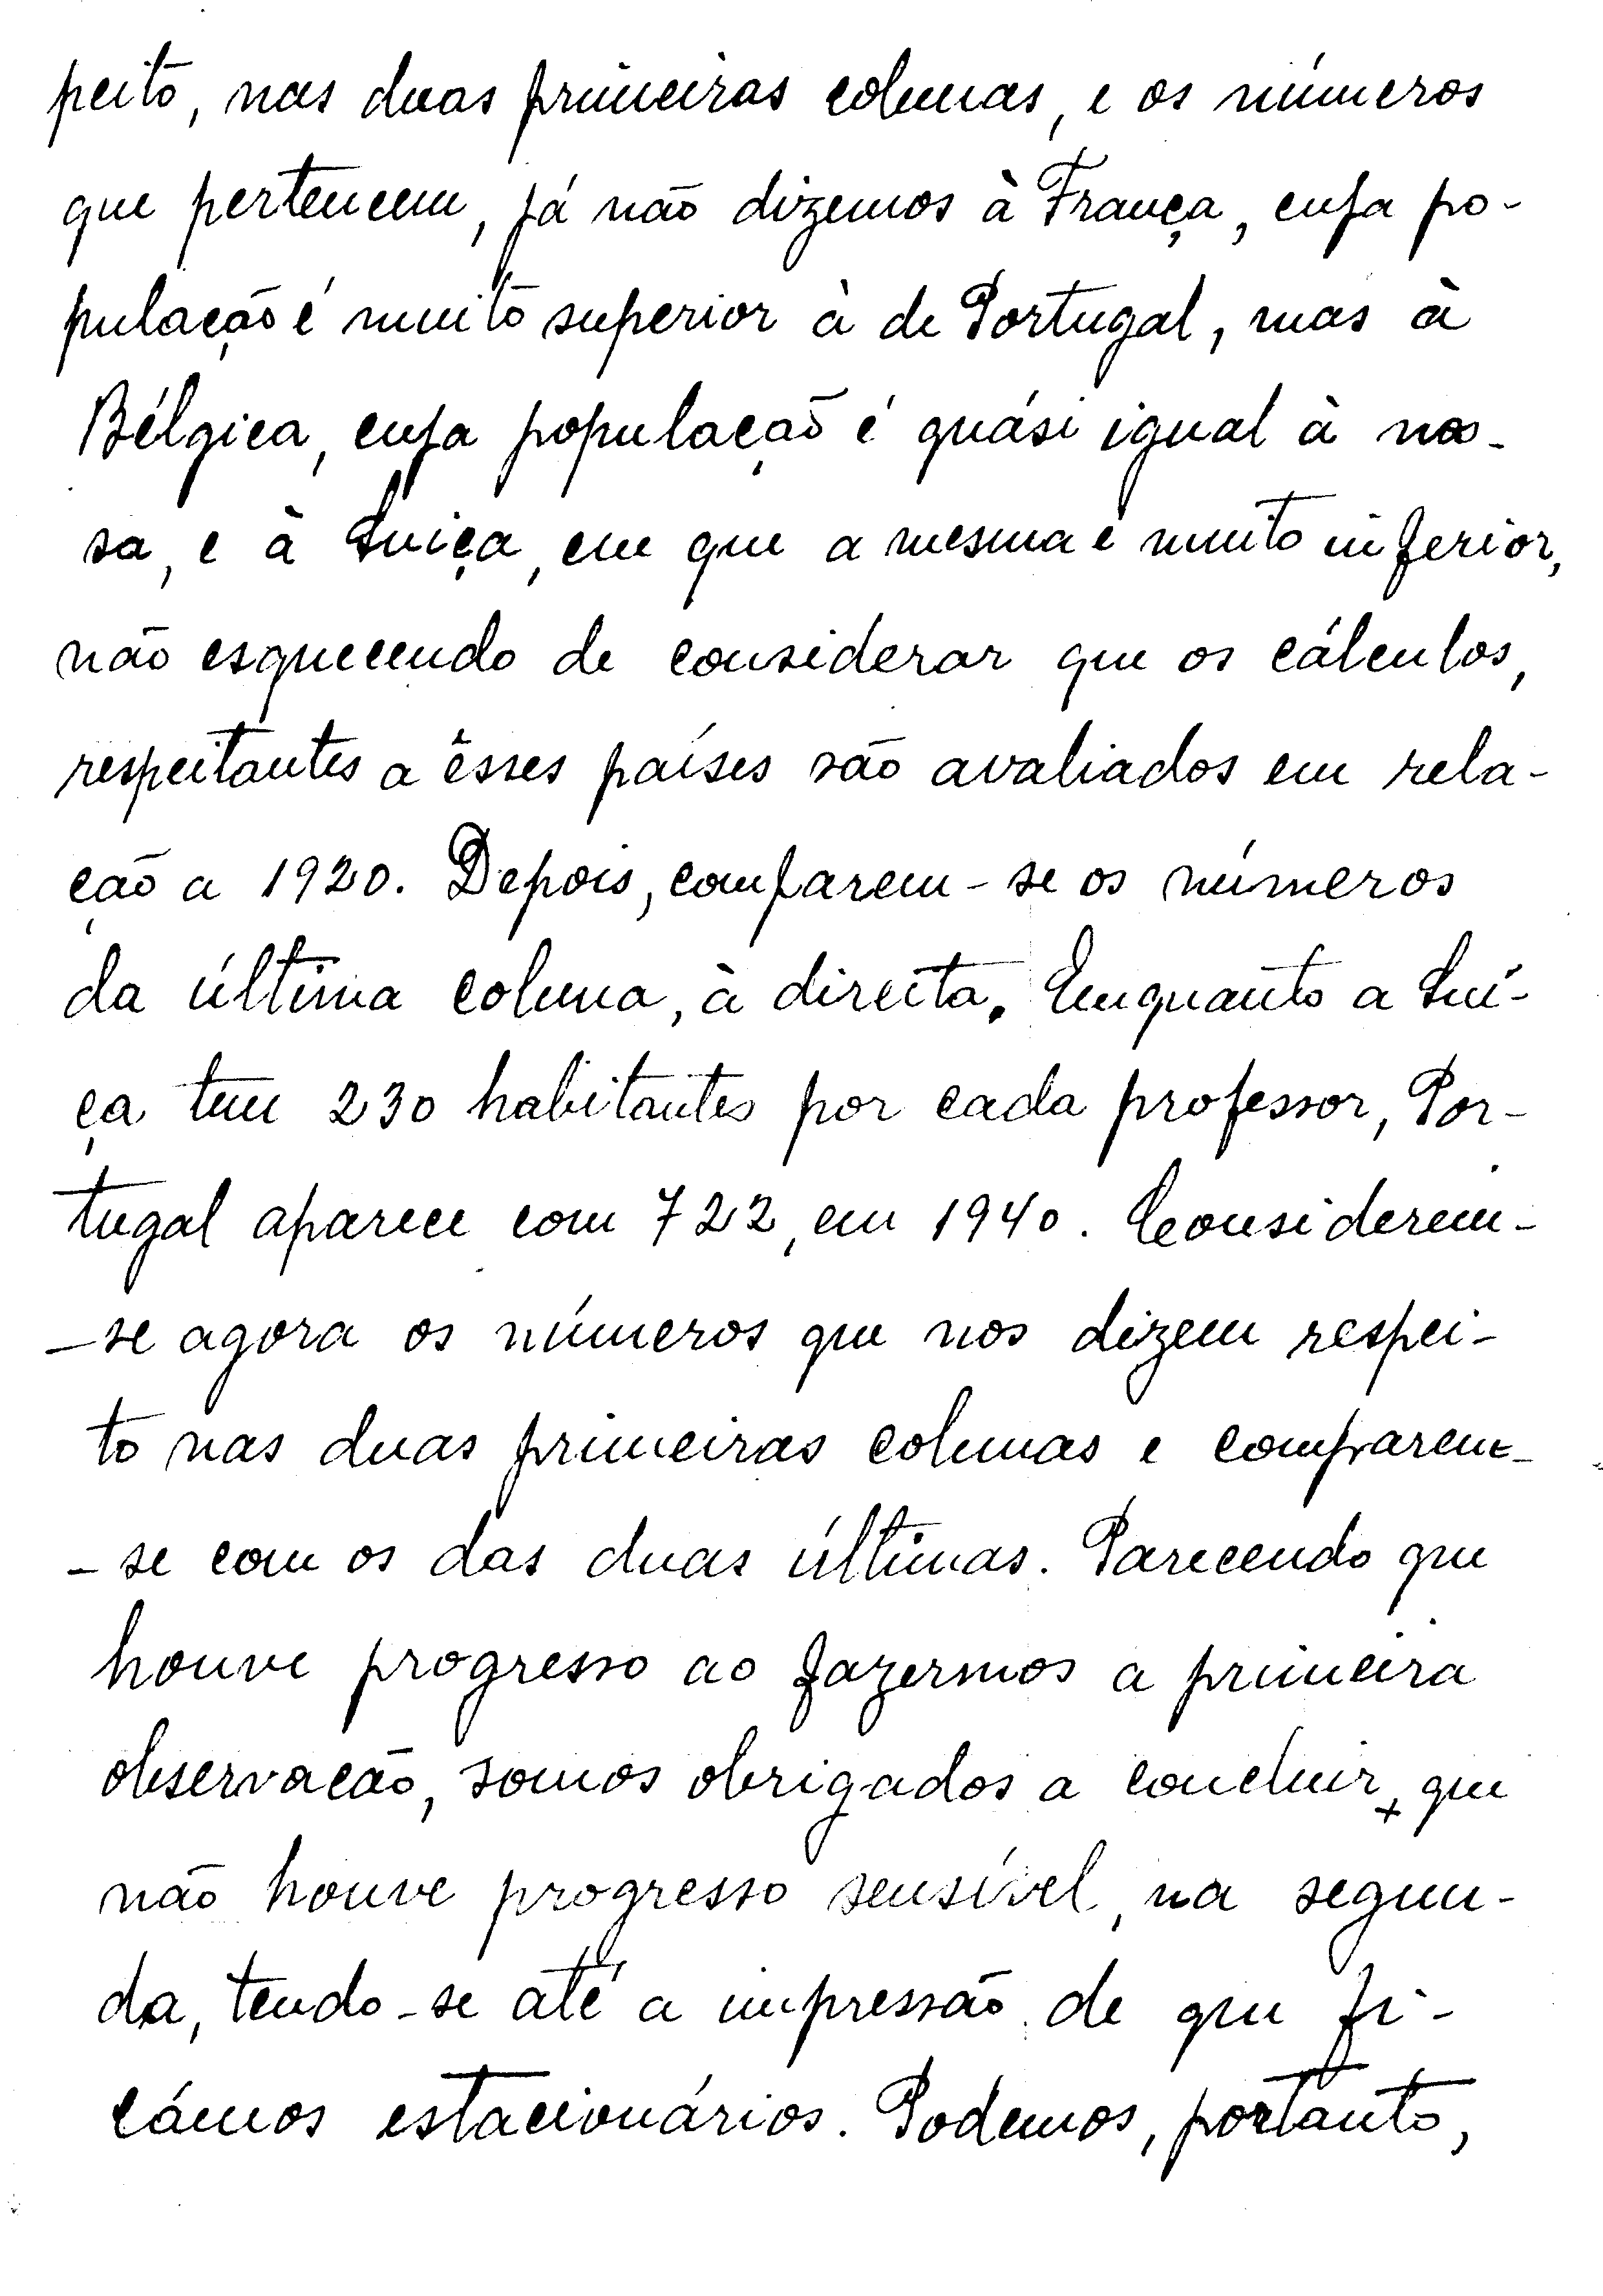 peito, nas duas primeiras colunas, e os números
que pertencem, já não dizemos à França, cuja po-
pulação é muito superior à de Portugal, mas à
Bélgica, cuja população é quási igual à nos-
sa, e à Suiça, em que a mesma é muito inferior,
não esquecendo de considerar que os cálculos,
respeitantes a êsses países são avaliados em rela-
ção a 1920. Depois, comparem-se os números
da última coluna, à direita. Emquanto a Suí-
ça tem 230 habitantes por cada professor, Por-
tugal aparece com 722, em 1940. Considerem-
-se agora os números que nos dizem respei-
to nas duas primeiras colunas e comparem-
-se com os das duas últimas. Parecendo que
houve progresso ao fazermos a primeira
observacão, somos obrigados a concluir, que
não houve progresso sensível, na segun-
da, tendo-se até a impressão de que fi-
cámos estacionários. Podemos, portanto,